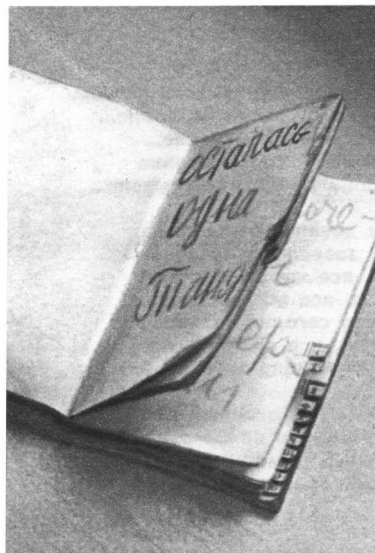 осталась
одна
Таня